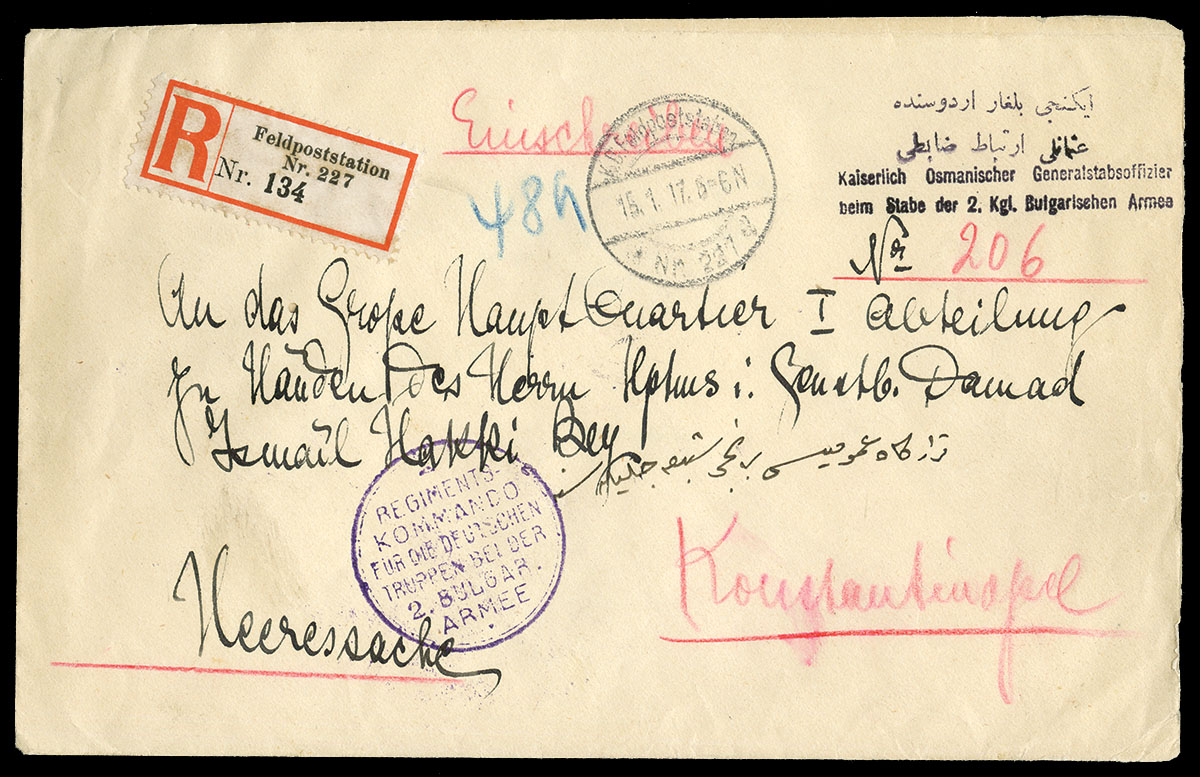 R
Feldpoststation
Nr. 227
Nr. 134
Einschreiben
48h
K.D. Feldpoststation
15.1.17. 5-6 N
Nr. 227 a
ايكنجى بلغار اردوسنده
عثمانلى ارتباط ضابطى
Kaiserlich Osmanischer Generalstabsoffizier
beim Stabe der 2. Kgl. Bulgarischen Armee
Nr 206
An das Große Haupt Quartier I Abteilung
Zu Händen des Herrn Hptms i. Genstb. Damad
Ismaïl Hakki Bey
REGIMENTS-
KOMMANDO
FÜR DIE DEUTSCHEN
TRUPPEN BEI DER
2. BULGAR.
ARMEE
Heeressache
Konstantinopel